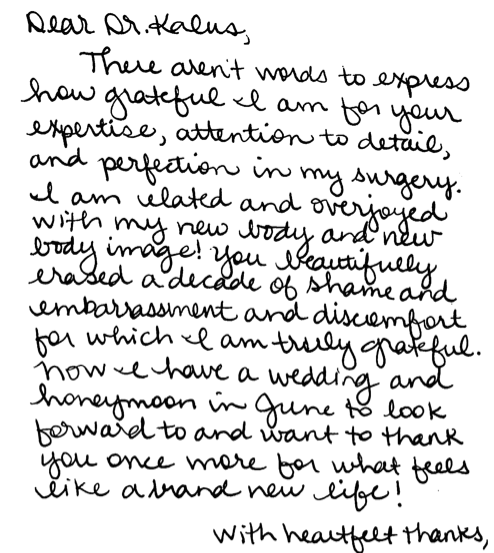 Dear Dr. Kalus,
There aren't words to express
how grateful I am for your
expertise, attention to detail,
and perfection in my surgery.
I am elated and overjoyed
with my new body and new
body image! You beautifully
erased a decade of shame and
embarrassment and discomfort
for which I am truly grateful.
Now I have a wedding and
honeymoon in June to look
forward to and want to thank
you once more for what feels
like a brand new life!
With heartfelt thanks,